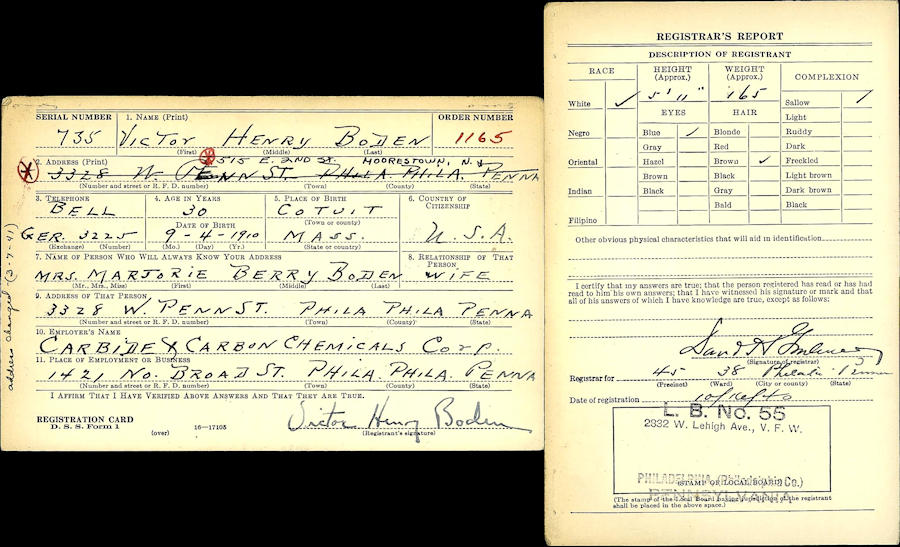 SERIAL NUMBER 1. NAME (Print) ORDER NUMBER
735 VICTOR HENRY BODEN 1165
(First) (Middle) (Last)
515 E. 2ND ST. MOORESTOWN, N.J.
2. ADDRESS (Print)
3328 W. PENN ST. PHILA PHILA. PENNA
(Number and street or R. F. D. number) (Town) (County) (State)
3. TELEPHONE 4. AGE IN YEARS 5. PLACE OF BIRTH 6. COUNTRY OF CITIZENSHIP
BELL 30 COTUIT
DATE OF BIRTH (Town or county)
GER. 3225 9-4-1910 MASS. U.S.A.
(Exchange) (Number) (Mo.) (Day) (Yr.) (State or country)
7. NAME OF PERSON WHO WILL ALWAYS KNOW YOUR ADDRESS 8. RELATIONSHIP OF THAT PERSON
MRS. MARJORIE BERRY BODEN WIFE
(Mr., Mrs., Miss) (First) (Middle) (Last)
9. ADDRESS OF THAT PERSON
3328 W. PENN ST. PHILA PHILA PENNA
(Number and street or R. F. D. number) (Town) (County) (State)
10. EMPLOYER'S NAME
CARBIDE & CARBON CHEMICALS CORP.
11. PLACE OF EMPLOYMENT OR BUSINESS
1421 NO. BROAD ST. PHILA. PHILA. PENNA
(Number and street or R. F. D. number) (Town) (County) (State)
I AFFIRM THAT I HAVE VERIFIED ABOVE ANSWERS AND THAT THEY ARE TRUE.
REGISTRATION CARD
D. S. S. Form 1 (over) 16—17105
Victor Henry Boden
(Registrant's signature)
address changed (3-7-41)
REGISTRAR'S REPORT
DESCRIPTION OF REGISTRANT
RACE HEIGHT (Approx.) WEIGHT (Approx.) COMPLEXION
5' 11" 165
White ✓ EYES HAIR Sallow ✓
Light
Negro Blue ✓ Blonde Ruddy
Gray Red Dark
Oriental Hazel Brown ✓ Freckled
Brown Black Light brown
Indian Black Gray Dark brown
Bald Black
Filipino
Other obvious physical characteristics that will aid in identification
I certify that my answers are true; that the person registered has read or has had
read to him his own answers; that I have witnessed his signature or mark and that
all of his answers of which I have knowledge are true, except as follows:
David H
(Signature of registrar)
Registrar for 45 38 Philada.
(Precinct) (Ward) (City or county) (State)
Date of registration 10/16/40
L. B. No. 55
2832 W. Lehigh Ave., V. F. W.
PHILADELPHIA (Philadelphia Co.)
(STAMP OF LOCAL BOARD)
PENNSYLVANIA
(The stamp of the Local Board having jurisdiction of the registrant
shall be placed in the above space.)